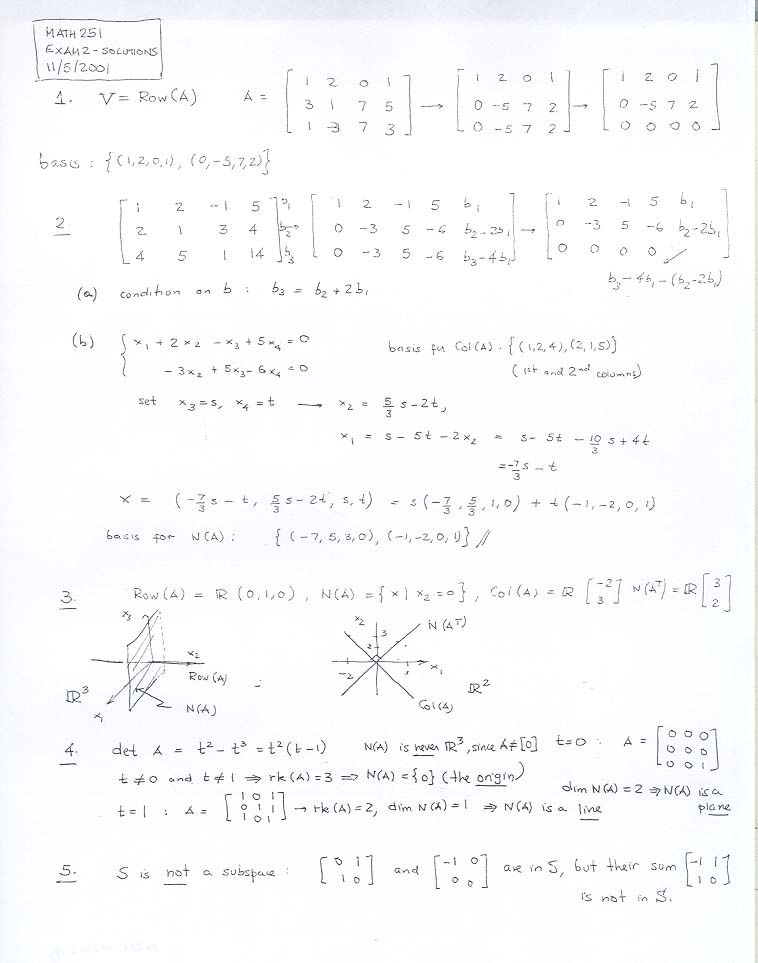 MATH 251
EXAM 2 - SOLUTIONS
11/5/2001
1. V = Row(A) A = [1 2 0 1; 3 1 7 5; 1 -3 7 3] → [1 2 0 1; 0 -5 7 2; 0 -5 7 2] → [1 2 0 1; 0 -5 7 2; 0 0 0 0]
basis : {(1,2,0,1), (0,-5,7,2)}
2 [1 2 -1 5; 2 1 3 4; 4 5 1 14] b₁ b₂ b₃ → [1 2 -1 5 b₁; 0 -3 5 -6 b₂-2b₁; 0 -3 5 -6 b₃-4b₁] → [1 2 -1 5 b₁; 0 -3 5 -6 b₂-2b₁; 0 0 0 0]
b₃-4b₁-(b₂-2b₁)
(a) condition on b : b₃ = b₂ + 2b₁
(b) { x₁ + 2x₂ - x₃ + 5x₄ = 0 basis for Col(A) : {(1,2,4), (2,1,5)}
-3x₂ + 5x₃ - 6x₄ = 0 (1st and 2nd columns)
set x₃ = s, x₄ = t → x₂ = 5/3 s - 2t,
x₁ = s - 5t - 2x₂ = s - 5t - 10/3 s + 4t
= -7/3 s - t
x = (-7/3 s - t, 5/3 s - 2t, s, t) = s(-7/3, 5/3, 1, 0) + t(-1,-2,0,1)
basis for N(A) : {(-7,5,3,0), (-1,-2,0,1)} //
3. Row(A) = ℝ (0,1,0), N(A) = {x | x₂ = 0}, Col(A) = ℝ [-2; 3] N(Aᵀ) = ℝ [3; 2]
x₃
x₂
Row(A)
ℝ³
N(A)
x₁
x₂
3
N(Aᵀ)
2
-2
3
x₁
ℝ²
Col(A)
4. det A = t² - t³ = t²(t-1) N(A) is never ℝ³, since A ≠ [0] t=0 : A = [0 0 0; 0 0 0; 0 0 1]
t≠0 and t≠1 ⇒ rk(A) = 3 ⇒ N(A) = {0} (the origin)
dim N(A) = 2 ⇒ N(A) is a plane
t=1 : A = [1 0 1; 0 1 1; 1 0 1] → rk(A) = 2, dim N(A) = 1 ⇒ N(A) is a line
5. S is not a subspace : [0 1; 1 0] and [-1 0; 0 0] are in S, but their sum [-1 1; 1 0]
is not in S.